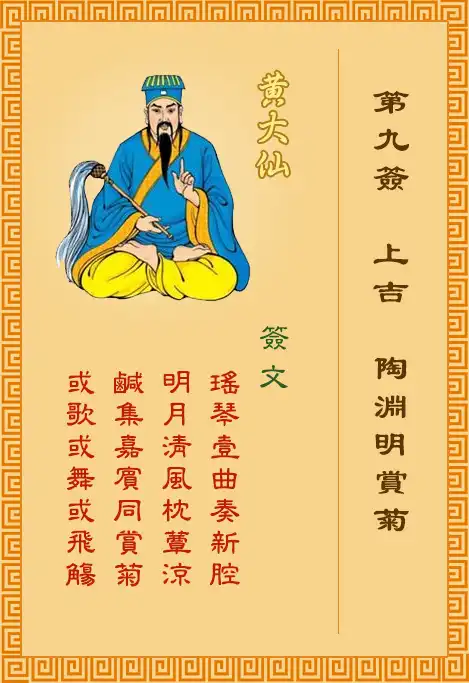 第九簽 上吉 陶淵明賞菊
黃大仙
簽文
瑤琴壹曲奏新腔
明月清風枕簟涼
鹹集嘉賓同賞菊
或歌或舞或飛觴